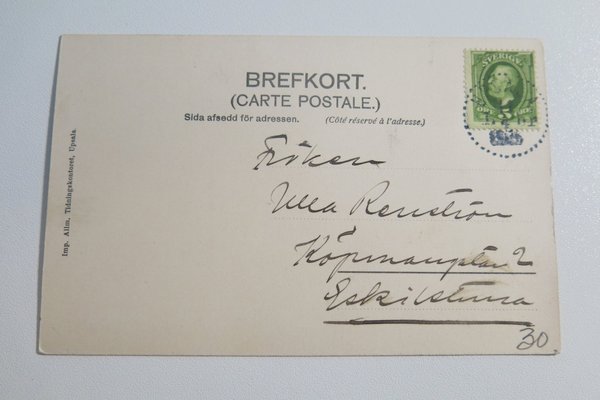 SVERIGE
5
BREFKORT.
(CARTE POSTALE.)
Sida afsedd för adressen. (Côté réservé à l'adresse.)
Imp. Allm. Tidningskontoret, Upsala.
Fröken
Ulla Renström
Köpmangatan 2
Eskilstuna
30